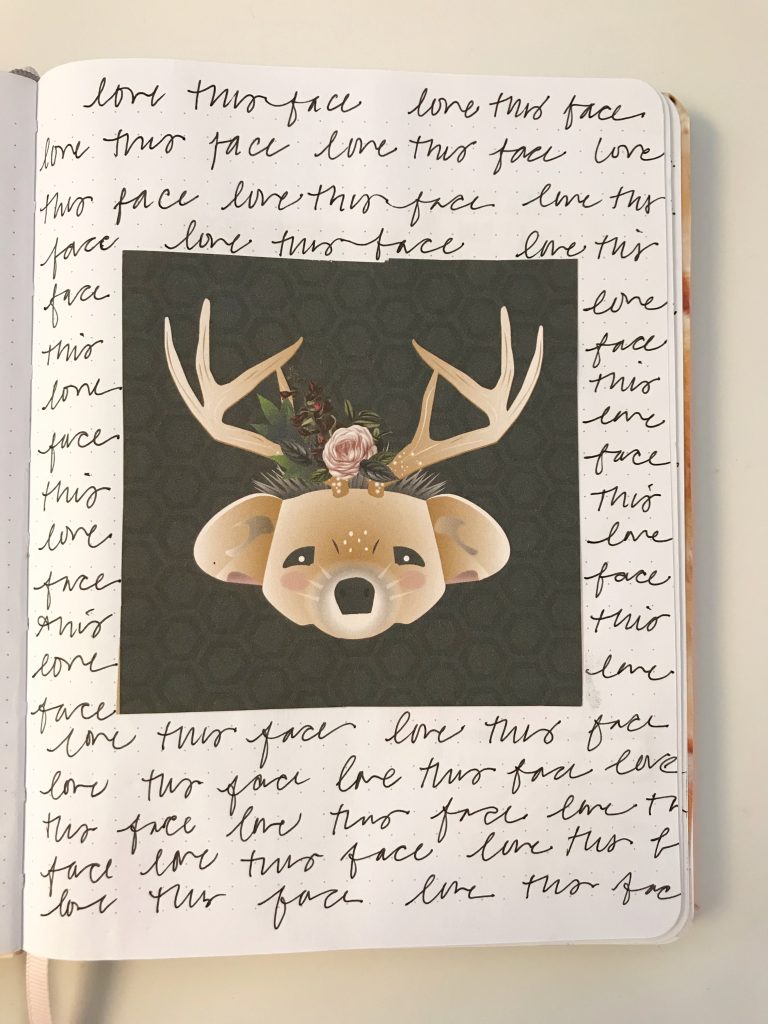 love this face love this face
love this face love this face love
this face love this face love this
face love this face love this
face
this
love
face
this
love
face
this
love
face
love
face
this
love
face
This
love
face
this
love
love this face love this face
love this face love this face love
this face love this face love th
face love this face love this f
love this face love this fac